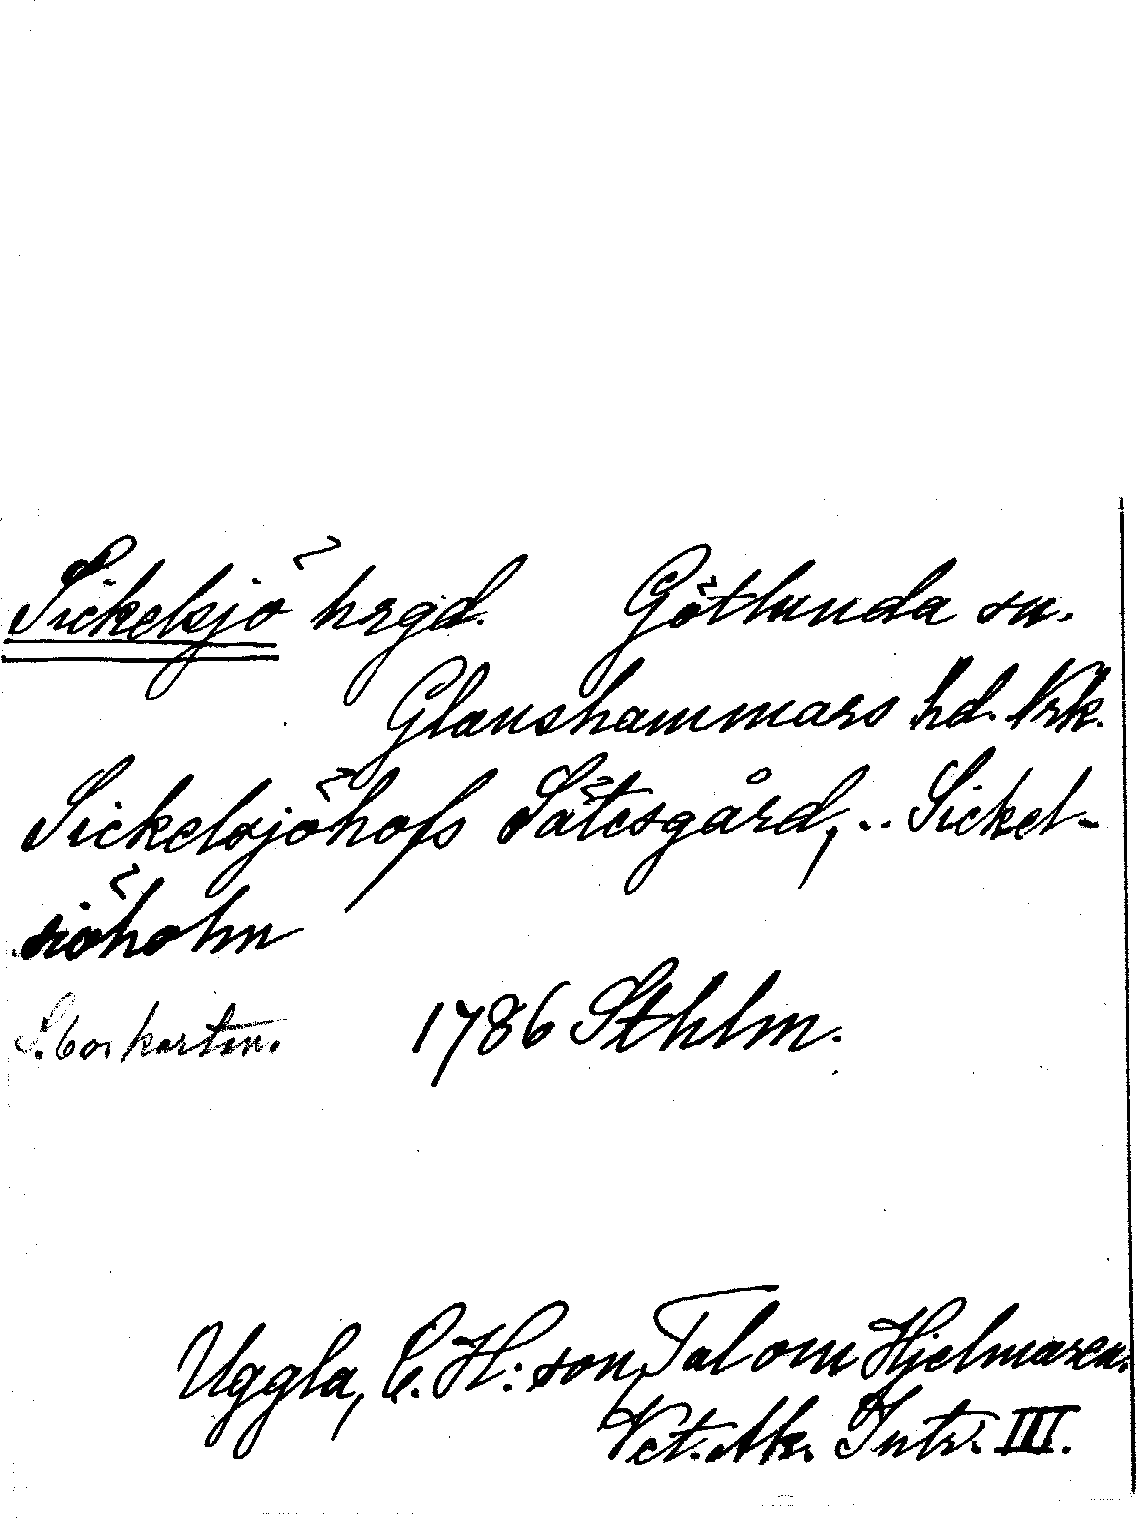 Sickelsjö hrgd. Götlunda sn.
Glanshammars hd. Nrk.
Sickelsjöhofs Sätesgård, .. Sickel-
siöholm
S. bor karten. 1786 Sthlm.
Uggla, C. H:son, Tal om Hjelmaren.
Vet. Ak. Intr. III.